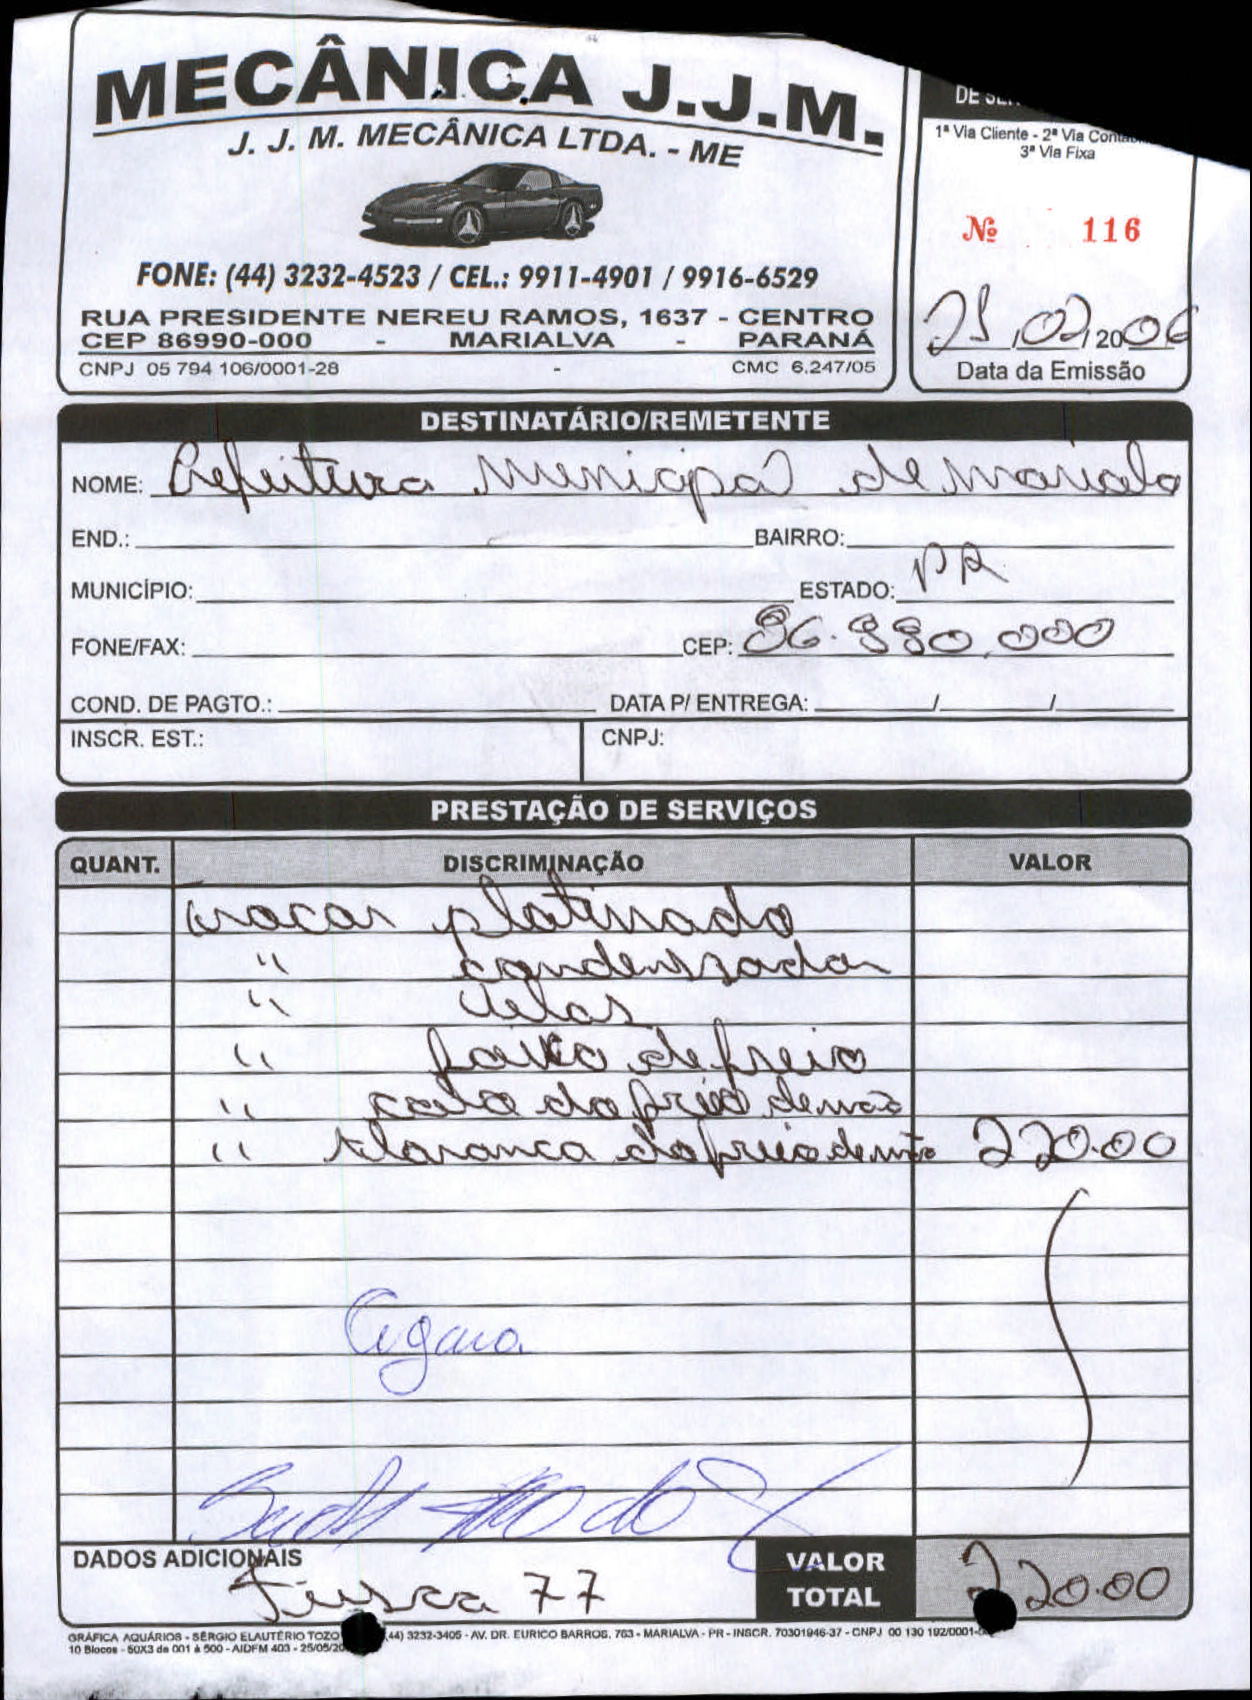 MECÂNICA J.J.M.
J. J. M. MECÂNICA LTDA. - ME
FONE: (44) 3232-4523 / CEL.: 9911-4901 / 9916-6529
RUA PRESIDENTE NEREU RAMOS, 1637 - CENTRO
CEP 86990-000 - MARIALVA - PARANÁ
CNPJ 05 794 106/0001-28 - CMC 6.247/05
1ª Via Cliente - 2ª Via
3ª Via Fixa
Nº 116
/02/2006
Data da Emissão
DESTINATÁRIO/REMETENTE
NOME: Prefeitura Municipal de Marialva
END.: BAIRRO:
MUNICÍPIO: ESTADO: PR
FONE/FAX: CEP: 86.990.000
COND. DE PAGTO.: DATA P/ ENTREGA: / /
INSCR. EST.: CNPJ:
PRESTAÇÃO DE SERVIÇOS
QUANT. DISCRIMINAÇÃO VALOR
trocar platinado
" condensador
" velas
" de freio
" cabo do freio de mão
" alavanca do freio de mão 220.00
DADOS ADICIONAIS
Fusca 77
VALOR TOTAL 220.00
GRÁFICA AQUÁRIOS - SÉRGIO ELAUTÉRIO TOZO (44) 3232-3405 - AV. DR. EURICO BARROS, 763 - MARIALVA - PR - INSCR. 70301946-37 - CNPJ 00 130 192/0001-
10 Blocos - 50X3 de 001 à 500 - AIDFM 403 - 25/05/20